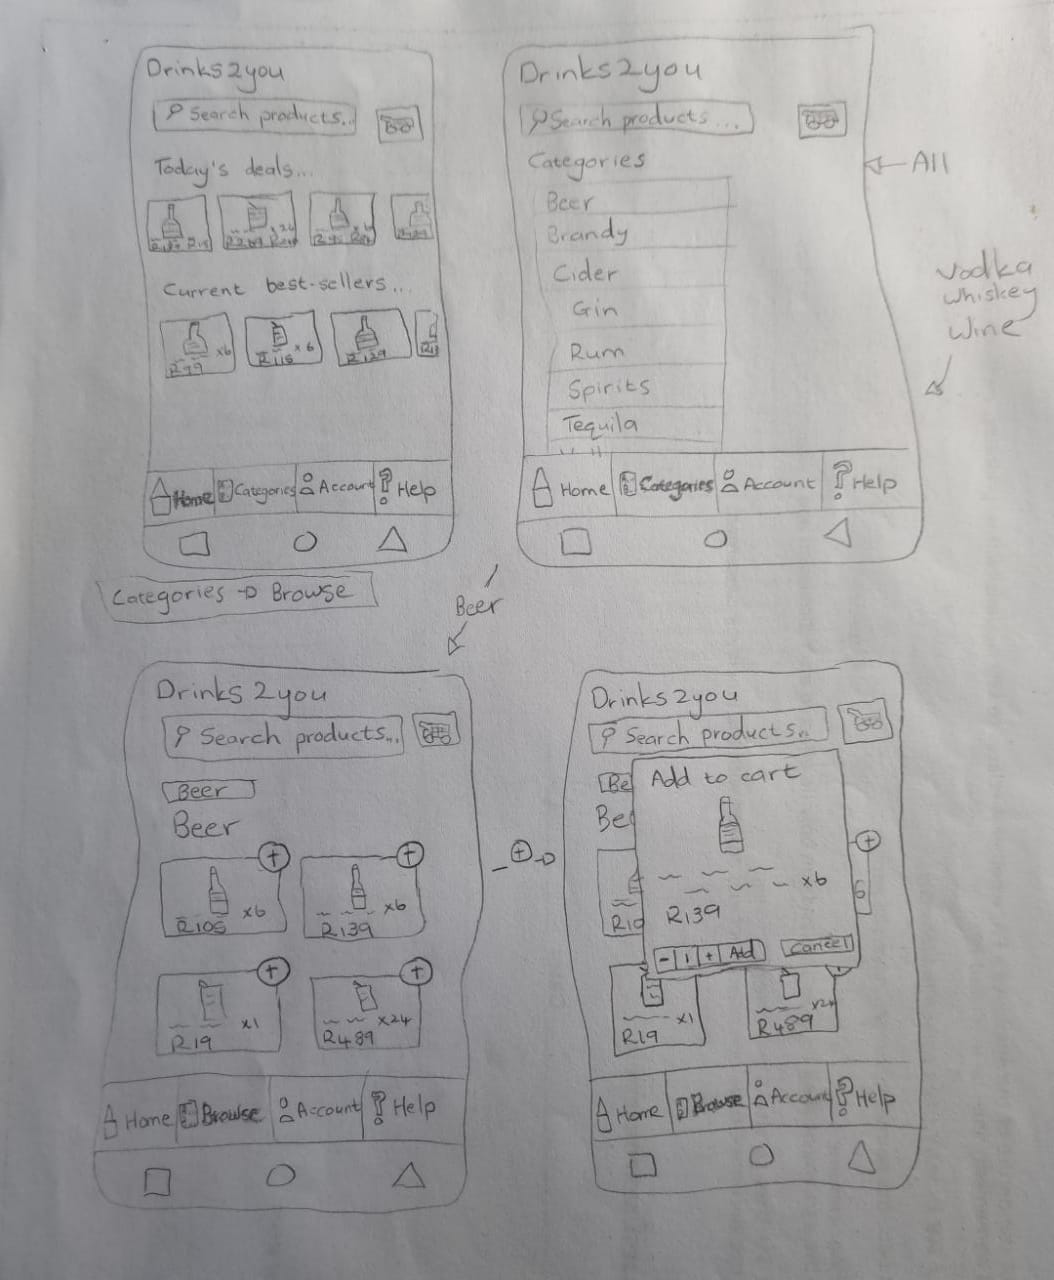 Drinks2you
Search products...
Today's deals...
Current best-sellers...
R79 x6
R115 x6
R139
Home Categories Account Help
Drinks2you
Search products...
Categories
Beer
Brandy
Cider
Gin
Rum
Spirits
Tequila
Home Categories Account Help
All
Vodka
Whiskey
Wine
Categories → Browse
Beer
Drinks2you
Search products...
Beer
Beer
R105 x6
R139 x6
R19 x1
R489 x24
Home Browse Account Help
+
Drinks2you
Search products...
Be
Bee
Add to cart
x6
R139
- 1 + Add Cancel
R10
6
R19 x1
R489 x24
Home Browse Account Help